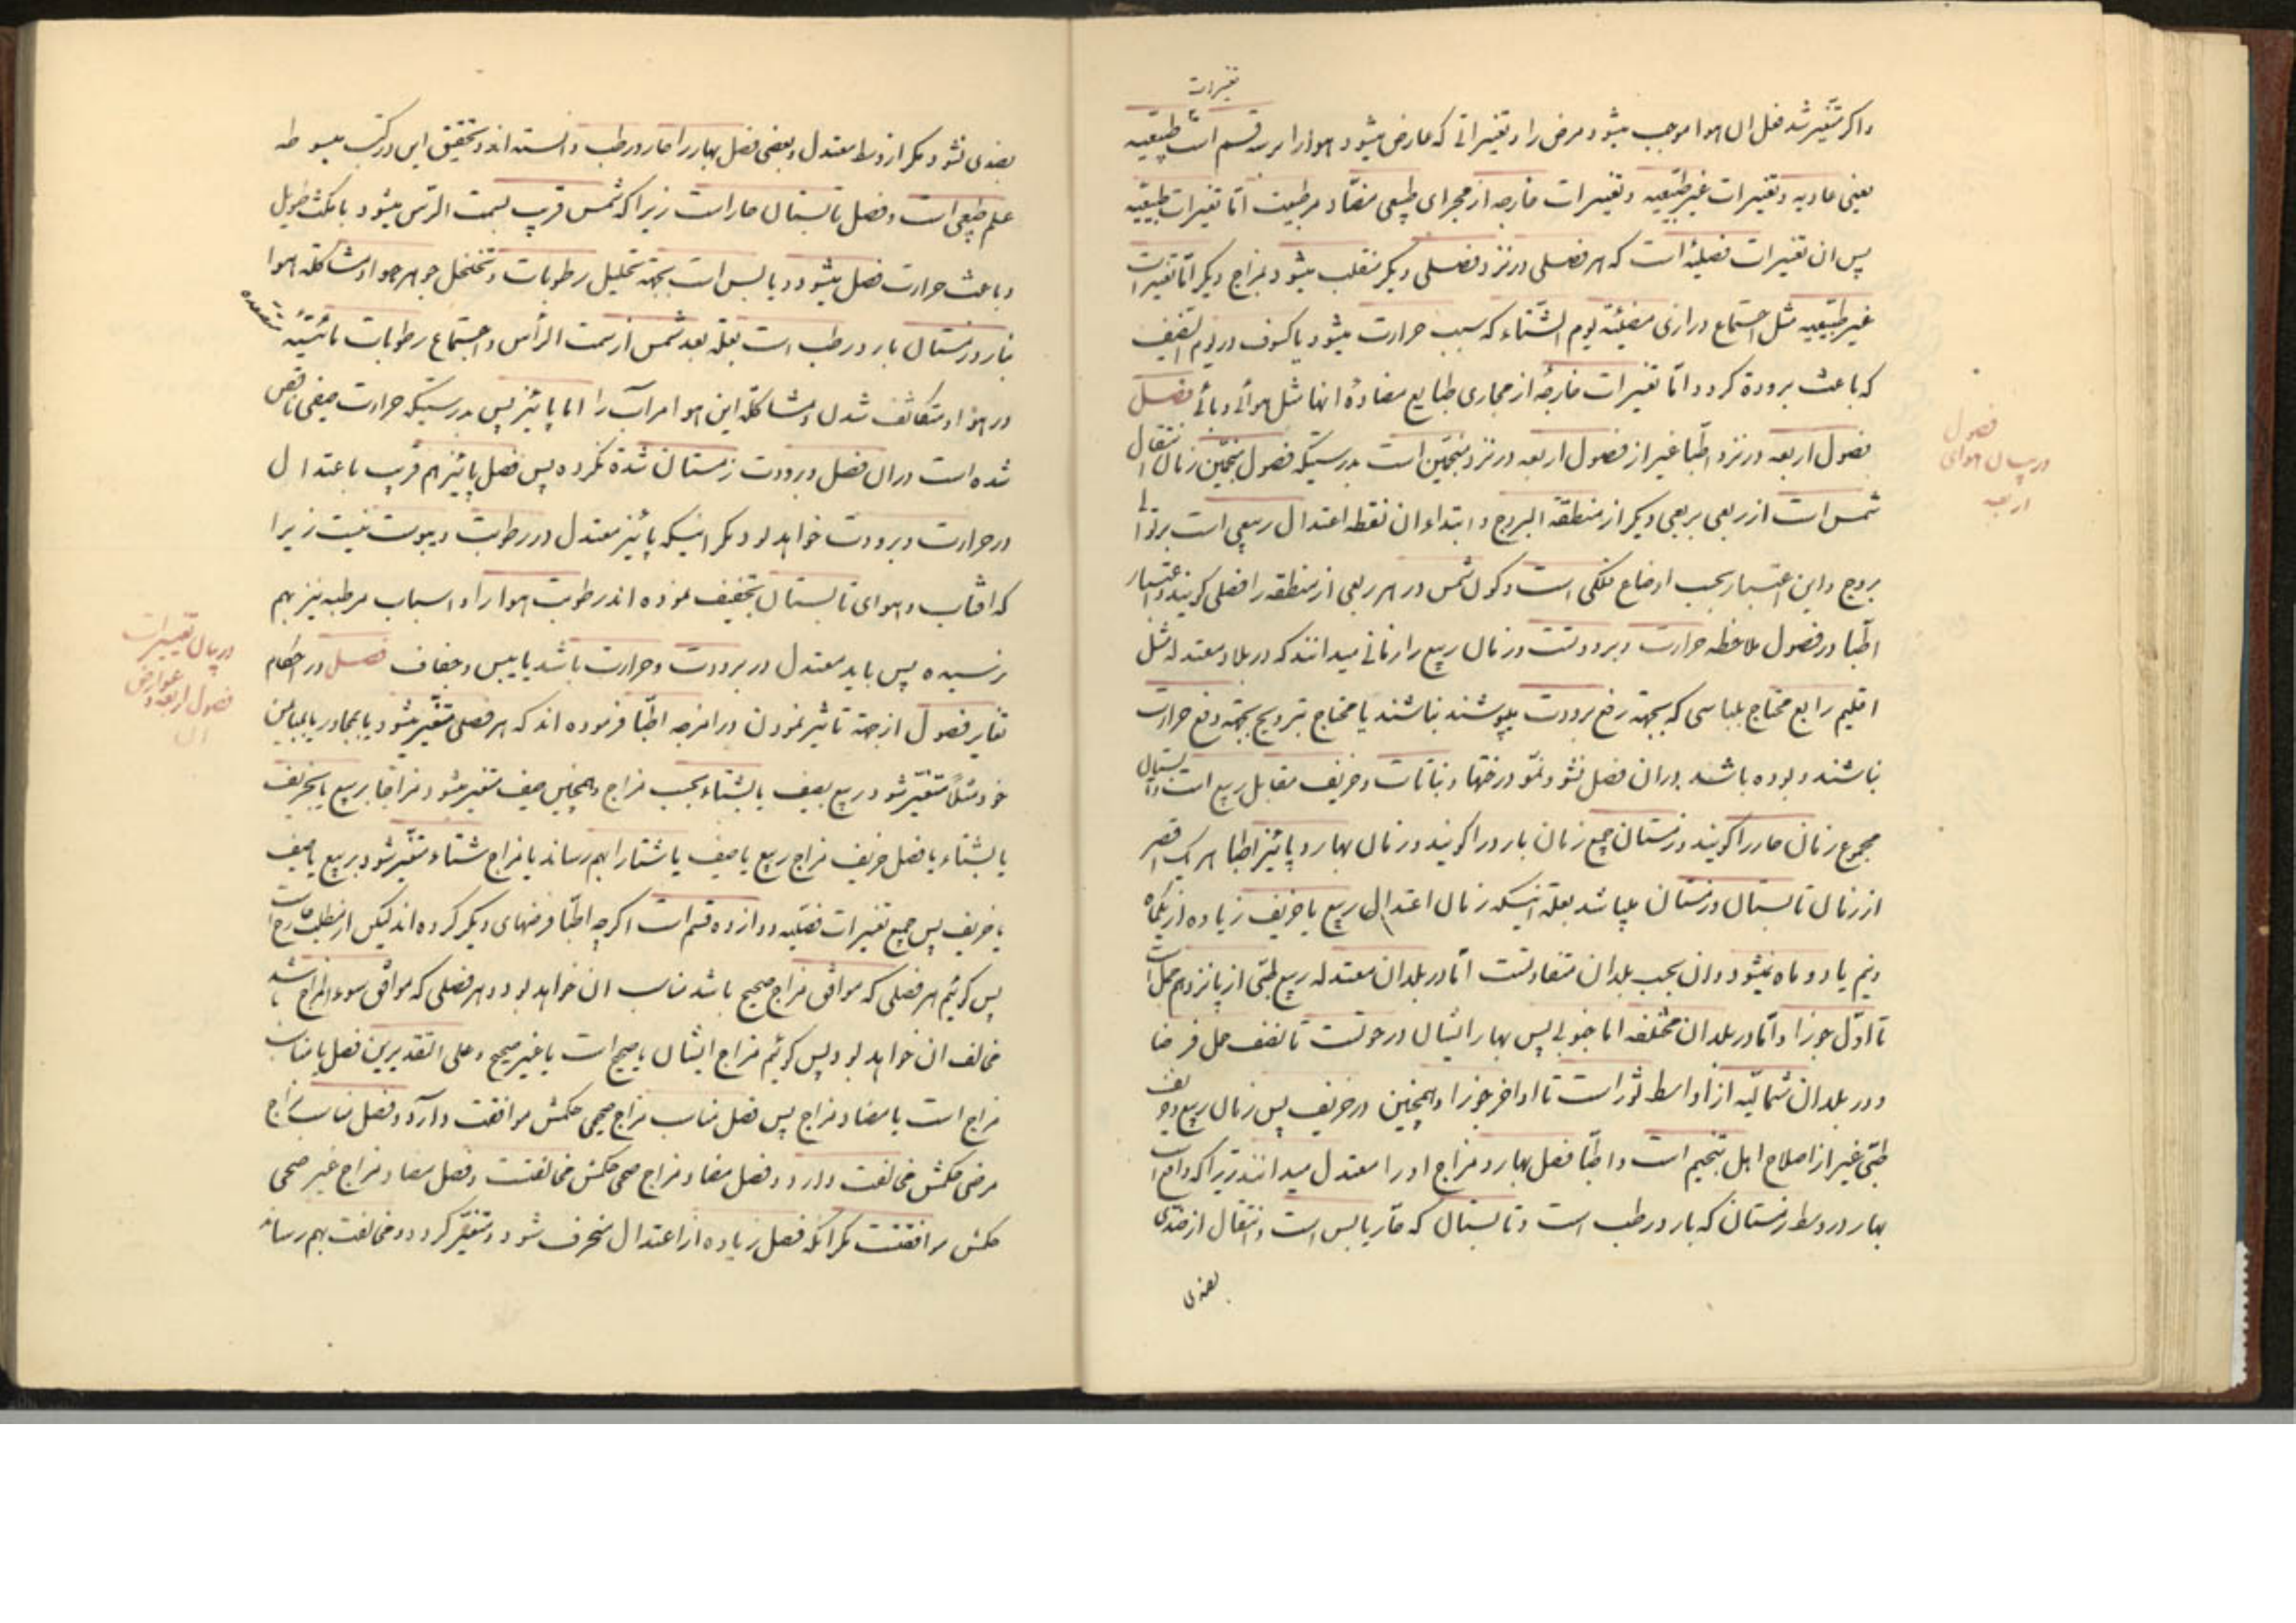 تغییرات
واکر متغیر شد فعل ان هوا موجب میشود مرض را و تغییراتی که عارض میشود هوا را بر سه قسم است طبیعیه
یعنی عادیه و تغییرات غیر طبیعیه و تغییرات خارجه از مجرای طبیعی مضاد مر طبیعت اما تغییرات طبیعیه
پس ان تغییرات فصلیه است که هر فصلی در نزد فصلی دیکر منقلب میشود بمزاج دیکر اما تغییرات
غیر طبیعیه مثل اجتماع دراری مضیئه یوم الشتاء که سبب حرارت میشود یا کسوف در یوم الصیف
که باعث برودة کردد و اما تغییرات خارجه از مجاری طبایع مضاده انها مثل هوائی وبائی فصل
فصول اربعه در نزد اطبا غیر از فصول اربعه در نزد منجمین است بدرستیکه فصول منجمین زمان انتقال
شمس است از ربعی بربعی دیکر از منطقة البروج و ابتداء ان نقطه اعتدال ربیعی است بر توالی
بروج و این اعتبار بحسب اوضاع فلکی است و کون شمس در هر ربعی از منطقه را فصلی کویند و اعتبار
اطبا در فصول ملاحظه حرارت و برودتست و زمان ربیع را زمانی میدانند که در بلاد معتدله مثل
اقلیم رابع محتاج بلباسی که بجهته رفع برودت بپوشند نباشند یا محتاج بترویح بجهته دفع حرارت
نباشند و بوده باشد دران فصل نشو و نمو درختها و نباتات و خریف مقابل ربیع است و تابستان
مجموع زمان حار را کویند و زمستان جمیع زمان بارد را کویند و زمان بهار و پائیز اطبا هر یک اقصر
از زمان تابستان و زمستان میباشد بعلة اینکه زمان اعتدال ربیع یا خریف زیاده از یکماه
و نیم یا دو ماه نمیشود و ان بحسب بلدان متفاوتست اما در بلدان معتدله ربیع طبی از پانزدهم حمل است
تا اول جوزا و اما در بلدان مختلفه اما جنوبی پس بهار ایشان در حوتست تا نصف حمل فرضا
و در بلدان شمالیه از اواسط ثور است تا اواخر جوزا و همچنین در خریف پس زمان ربیع و خریف
طبی غیر از اصلاح اهل تنجیم است و اطبا فصل بهار و مزاج او را معتدل میدانند زیرا که واقع است
بهار در وسط زمستان که بارد رطب است و تابستان که حار یابس است و انتقال از ضدی
بضدی
فصول
در بیان هوای
اربعه
بضدی نشود مکر از وسط معتدل و بعضی فصل بهار را حار و رطب دانسته اند و تحقیق این در کتب مبسوطه
علم طبیعی است و فصل تابستان حار است زیرا که شمس قریب بسمت الراس میشود با مکث طویل
و باعث حرارت فصل میشود و یابس است بجهته تحلیل رطوبات و تخلخل جوهر هوا و مشاکلة هوا
نار و زمستان بارد رطب است بعلة بعد شمس از سمت الراس و اجتماع رطوبات مائیه متصعده
در هوا و متکاثف شدن و مشاکلة این هوا مر آب را اما پائیز پس بدرستیکه حرارت صیفی ناقص
شده است دران فصل و برودت زمستان شدة نکرده پس فصل پائیز هم قریب باعتدال
در حرارت و برودت خواهد بود مکر اینکه پائیز معتدل در رطوبت و یبوست نیست زیرا
که افتاب و هوای تابستان تجفیف نموده اند رطوبت هوا را و اسباب مرطبه نیز بهم
نرسیده پس باید معتدل در برودت و حرارت باشد با یبس و جفاف فصل در احکام
تغایر فصول از جهة تاثیر نمودن در امزجه اطبا فرموده اند که هر فصلی متغیر میشود یا بمجاور یا بمباین
خود مثلا متغیر شود ربیع بصیف یا بشتاء بحسب مزاج و همچنین صیف متغیر شود مزاجا بربیع یا بخریف
یا بشتاء یا فصل خریف مزاج ربیع یا صیف یا شتا را بهم رساند یا مزاج شتاء متغیر شود بربیع یا صیف
یا خریف پس جمیع تغییرات فصلیه دوازده قسم است اکرچه اطبا فرضهای دیکر کرده اند لیکن از مطلب خارج است
پس کوئیم هر فصلی که موافق مزاج صحیح باشد مناسب ان خواهد بود و هر فصلی که موافق سوء المزاج باشد
مخالف ان خواهد بود پس کوئیم مزاج ایشان یا صحیح است یا غیر صحیح و علی التقدیرین فصل یا مناسب
مزاج است یا مضاد مزاج پس فصل مناسب مزاج صحی حکمش موافقت دارد و فصل مناسب مزاج
مرضی حکمش مخالفت دارد و فصل مضاد مزاج صحی حکمش مخالفت و فصل مضاد مزاج غیر صحی
حکمش موافقتست مکر انکه فصل زیاده از اعتدال منحرف شود و متغیر کردد و مخالفت بهم رساند
در بیان تغییرات
فصول اربعه و عوارض
ان